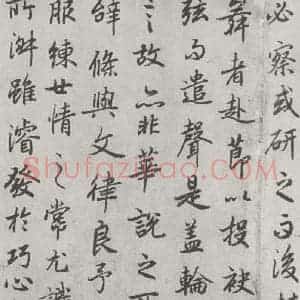 必察或研之而後
舞者赴莭以投袂
弦而遣聲是蓋輪
故亦非華說之
辭條與文律良予
服練世情之常尤識
所淑雖濬發於巧心
Shufaziliao.com